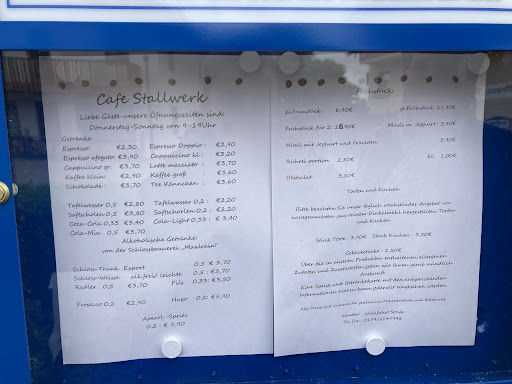 Cafe Stallwerk
Liebe Gäste unsere Öfnungszeiten sind:
Donnerstag-Sonntag von 9-19Uhr
Getränke:
Espresso: €2,30 Espresso Doppio: €2,90
Espresso afogato: €3,90 Cappuccino kl.: €3,20
Cappuccino gr. €3,70 Latte macciato: €3,70
Kaffee klein: €2,90 Kaffee groß €3,60
Schokolade: €3,70 Tee Kännchen: €3,60
Tafelwasser 0,5 €2,80 Tafelwasser 0,2: €2,20
Saftschorlen 0,5 €3,80 Saftschorlen 0,2: €2,20
Coca-Cola 0,33 €3,40 Cola-Light 0,33: € 3,40
Cola-Mix 0,5 €3,70
Alkoholische Getränke:
von der Schlossbrauerei „Maxlrain"
Schloss-Trunk, Export 0,5: € 3,70
Schloss-Weisse alk.frei/ leichte 0,5: € 3,70
Radler 0,5 €3,70 Pils 0,33: €3,50
Prosecco 0,2 €2,90 Hugo 0,2: € 5,90
Aperol-Spritz
0,2: € 5,90
Frühstück:
kl.Frühstück: 8,90€ gr.Frühstück 11,90€
Frühstück für 2: Müsli m. Joghurt: 5,90€
Müsli mit Joghurt und Früchten 5,90€
Rührei portion 2,50€ Ei 1,00€
Obstsalat 3,50€
Torten und Kuchen
Bitte beachten Sie unser täglich wechselndes Angebot von
hausgemachten aus reinem Dinkelmehl hergestellten Torten
und Kuchen
Stück Torte: 3,90€ Stück Kuchen: 3,50€
Gebäckstücke: 2,50€
Über die in unseren Produkten enthaltenen allergenen
Zutaten und Zusatzstoffen geben wir Ihnen gerne mündlich
Auskunft.
Eine Speise und Getränkekarte mit den entsprechenden
Informationen hierzu kann jederzeit eingesehen werden.
Inhaber: Sonja